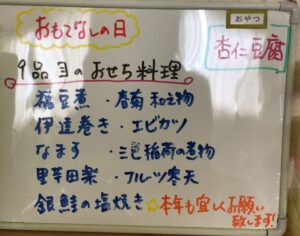 おもてなしの日
おやつ
杏仁豆腐
9品目のおせち料理
福豆煮・春菊和え物
伊達巻き・エビカツ
なます・三色稲荷の煮物
里芋田楽・フルーツ寒天
銀鮭の塩焼き
☆本年も宜しくお願い
致します!